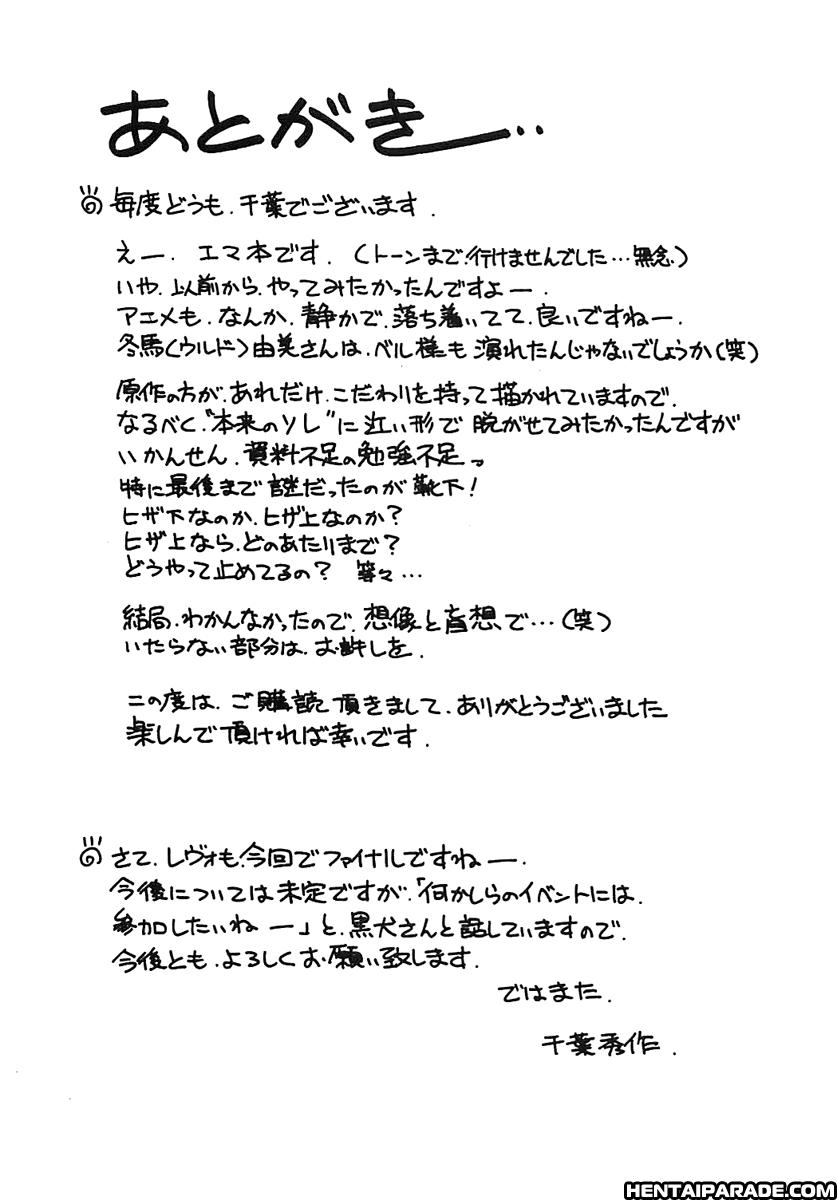 あとがき…
毎度どうも、千葉でございます.
えー. エマ本です. (トーンまで、行けませんでした…無念)
いや、以前から、やってみたかったんですよー.
アニメも、なんか、静かで、落ち着いてて、良いですねー.
冬馬(ウルド)由美さんは、ベル様も演れたんじゃないでしょうか(笑)
原作の方が、あれだけ、こだわりを持って描かれていますので、
なるべく、“本来のソレ”に近い形で脱がせてみたかったんですが
いかんせん、資料不足の勉強不足っ
特に最後まで謎だったのが靴下!
ヒザ下なのか、ヒザ上なのか?
ヒザ上なら、どのあたりまで?
どうやって止めてるの? 等々…
結局、わかんなかったので、想像と妄想で…(笑)
いたらない部分は、お許しを.
この度は、ご購読頂きまして、ありがとうございました
楽しんで頂ければ幸いです.
さて、レヴォも、今回でファイナルですねー.
今後については未定ですが、「何かしらのイベントには、
参加したいねー」と、黒犬さんと話していますので、
今後とも、よろしくお願い致します.
ではまた.
千葉秀作.
HENTAIPARADE.COM